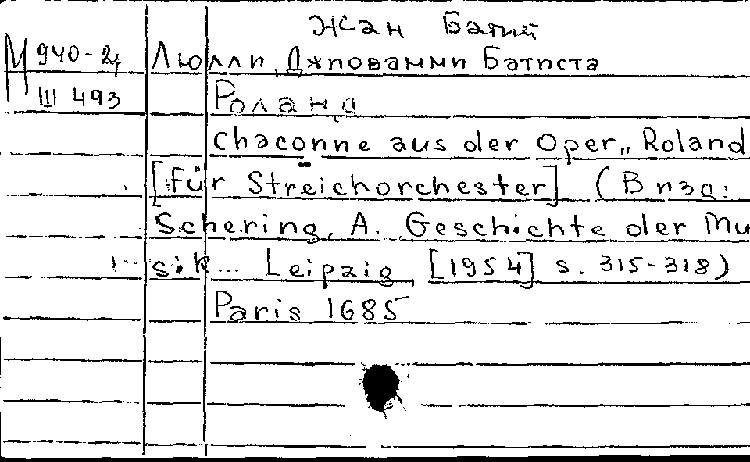 Жан Батист
М 940-2, Люлли, Джованни Батиста
III 493 Роланд
Chaconne aus der Oper „Roland
[für Streichorchester] (В изд:
Schering, A. Geschichte der Mu
sik... Leipzig, [1954] s. 315-318)
Paris 1685